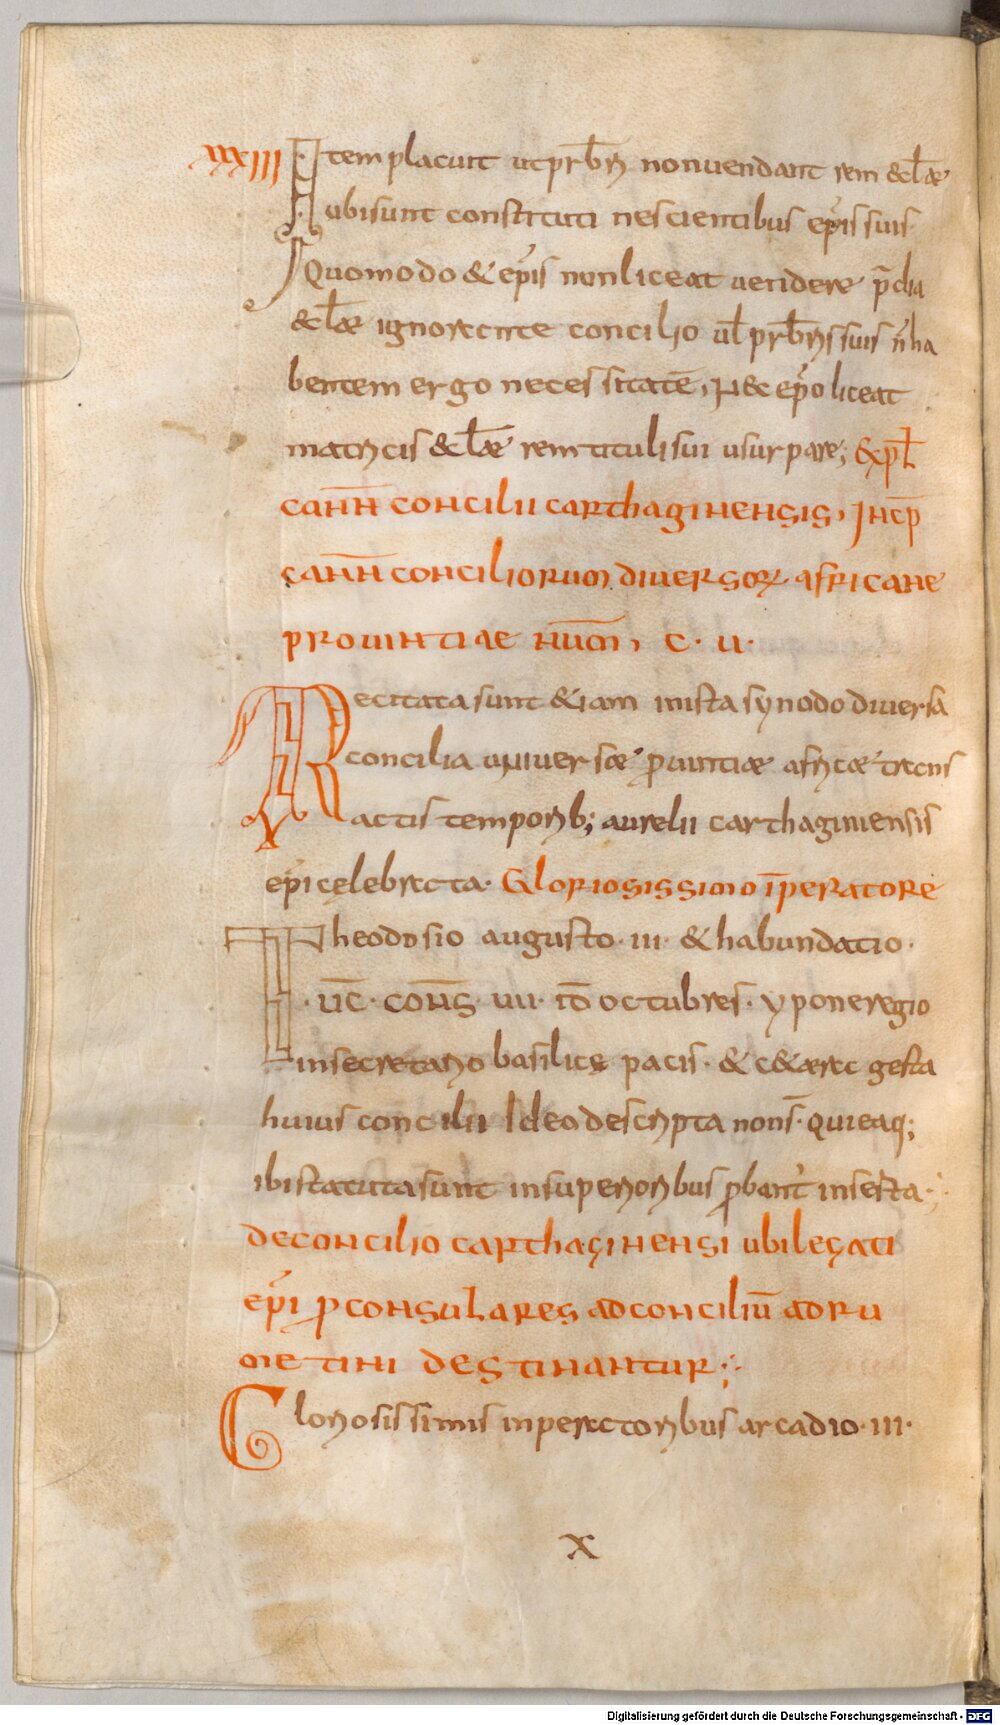 XXXIII Item placuit ut prb̄ri non uendant rem eccl̄ae
ubi sunt constituti nescientibus ep̄is suis
Quomodo & ep̄is non liceat uendere p̄dia
&cl̄ae ignorante concilio ul̄ prb̄ris suis n̄ ha
bentem ergo necessitatē, nec ep̄o liceat
matricis &cl̄ae rem tituli sui usurpare; Expl̄
cann̄ concilii carthaginensis, Incp̄
cann̄ conciliorum diuersoꝝ africane
prouintiae num̄, C. U.
Recitata sunt &iam in ista synodo diuersa
concilia uniuersae ꝓuintiae africae trans
actis temporib; aurelii carthaginiensis
ep̄i cęlebrata. Gloriosissimo īperatore
Theodosio augusto. III. & habundatio.
uc̄. cons̄. uii. id̄ octubres. yponeregio
in secretario basilicę pacis. & c&aera gesta
huius concilii Ideo descripta non s̄. Quia eaq;
ibi statuta sunt in superioribus ꝓbant̄ inserta.
De concilio carthaginensi ubi legati
ep̄i ꝓconsulares ad conciliū adru
metini destinantur;
Gloriosissimis inperatoribus arcadio. III.
x
Digitalisierung gefördert durch die Deutsche Forschungsgemeinschaft - DFG